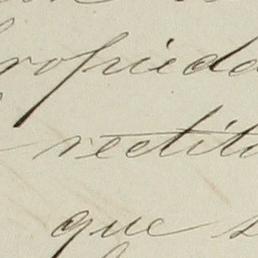 ropieda
rectitu
que s